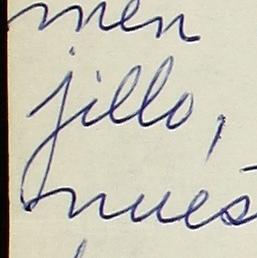 men
jillo,
mues